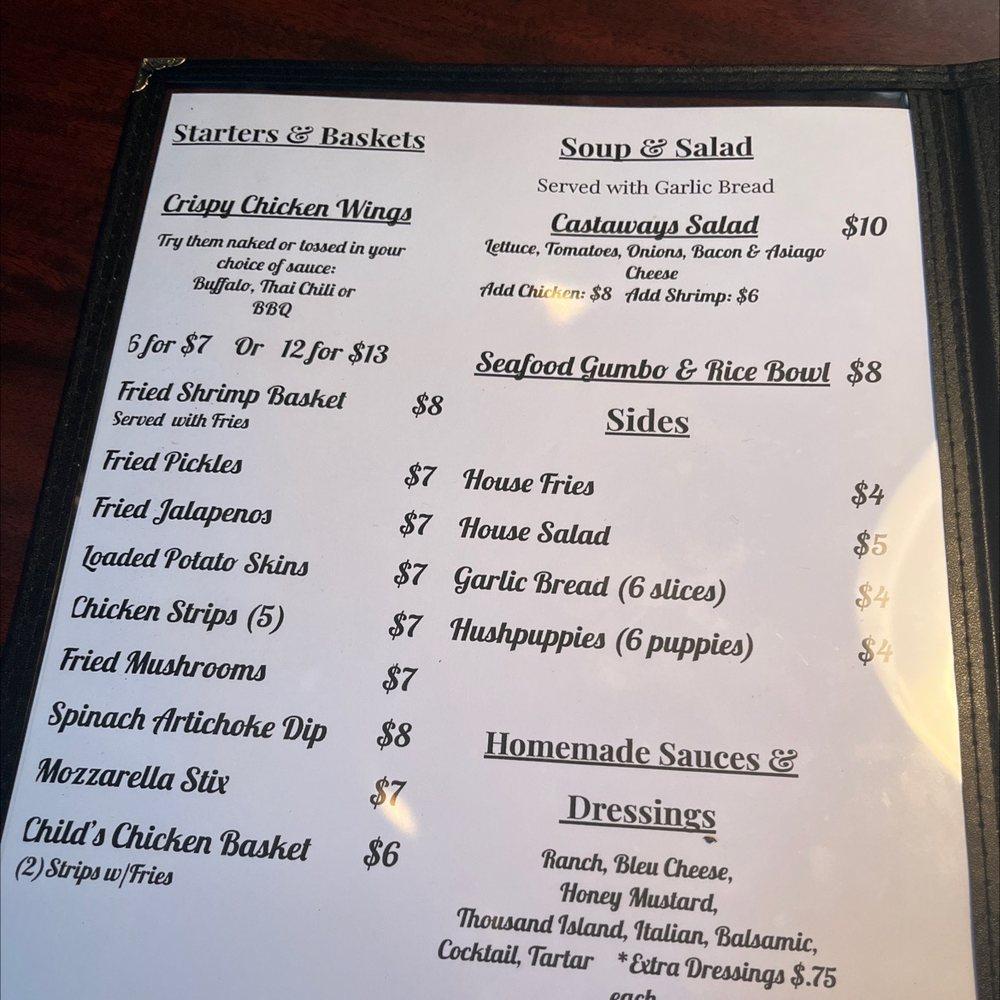 Starters & Baskets
Crispy Chicken Wings
Try them naked or tossed in your
choice of sauce:
Buffalo, Thai Chili or
BBQ
6 for $7 Or 12 for $13
Fried Shrimp Basket $8
Served with Fries
Fried Pickles $7
Fried Jalapenos $7
Loaded Potato Skins $7
Chicken Strips (5) $7
Fried Mushrooms $7
Spinach Artichoke Dip $8
Mozzarella Stix $7
Child's Chicken Basket $6
(2) Strips w/Fries
Soup & Salad
Served with Garlic Bread
Castaways Salad $10
Lettuce, Tomatoes, Onions, Bacon & Asiago
Cheese
Add Chicken: $8 Add Shrimp: $6
Seafood Gumbo & Rice Bowl $8
Sides
House Fries $4
House Salad $5
Garlic Bread (6 slices) $4
Hushpuppies (6 puppies) $4
Homemade Sauces &
Dressings
Ranch, Bleu Cheese,
Honey Mustard,
Thousand Island, Italian, Balsamic,
Cocktail, Tartar *Extra Dressings $.75
each